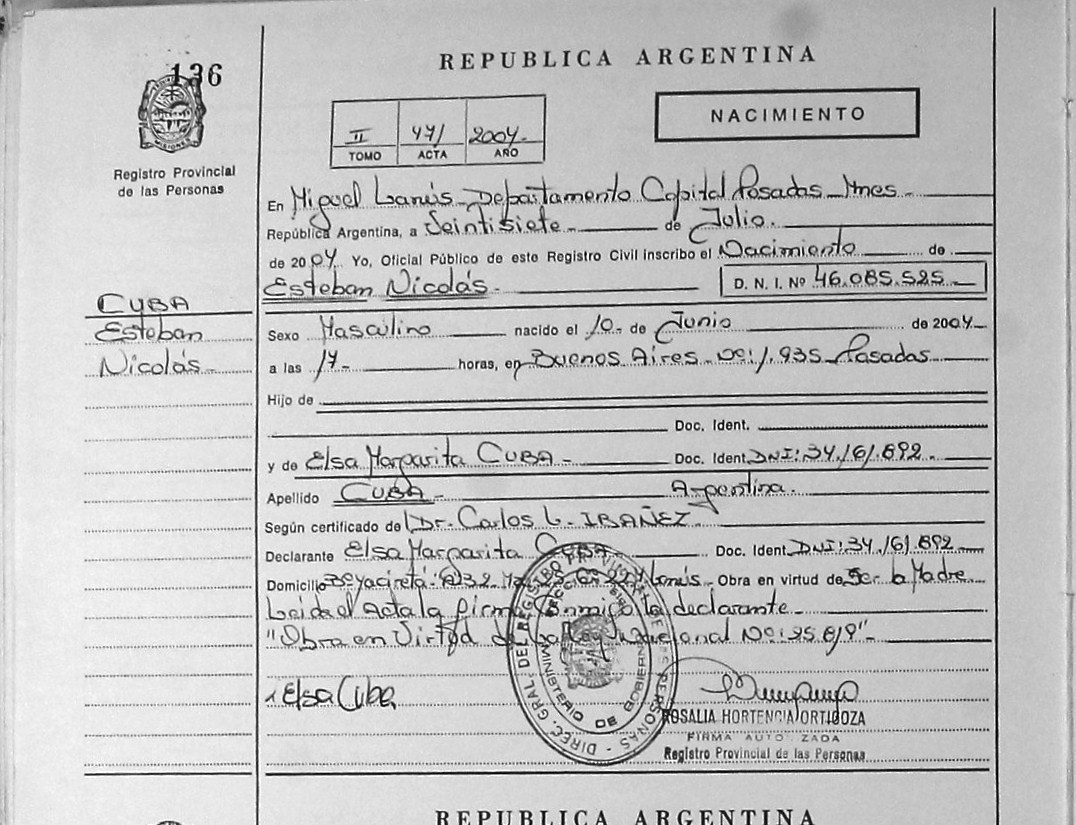 136
REPUBLICA ARGENTINA
NACIMIENTO
II 471 2004
TOMO ACTA AÑO
MISIONES
Registro Provincial
de las Personas
En Miguel Lanús Departamento Capital Posadas Mnes
República Argentina, a Veintisiete de Julio
de 2004 Yo, Oficial Público de este Registro Civil inscribo el Nacimiento de
Esteban Nicolás D. N. I. Nº 46.085.525
CUBA
Esteban
Nicolás
Sexo Masculino nacido el 10 de Junio de 2004
a las 17 horas, en Buenos Aires Nº: 1.935 Posadas
Hijo de
Doc. Ident.
y de Elsa Margarita CUBA Doc. Ident. DNI: 34.161.892
Apellido CUBA Argentina
Según certificado de Dr. Carlos L. IBAÑEZ
Declarante Elsa Margarita CUBA Doc. Ident. DNI: 34.161.892
Domicilio Lanús Obra en virtud de Ser la Madre
Leida el Acta la firma Conmigo la declarante
"Obra en Virtud de la Ley Nacional Nº: 25.819"
Elsa Cuba
DIREC. GRAL. DEL REGISTRO PROVINCIAL DE LAS PERSONAS
MINISTERIO DE GOBIERNO
ROSALIA HORTENCIA ORTIGOZA
FIRMA AUTO ZADA
Registro Provincial de las Personas
REPUBLICA ARGENTINA